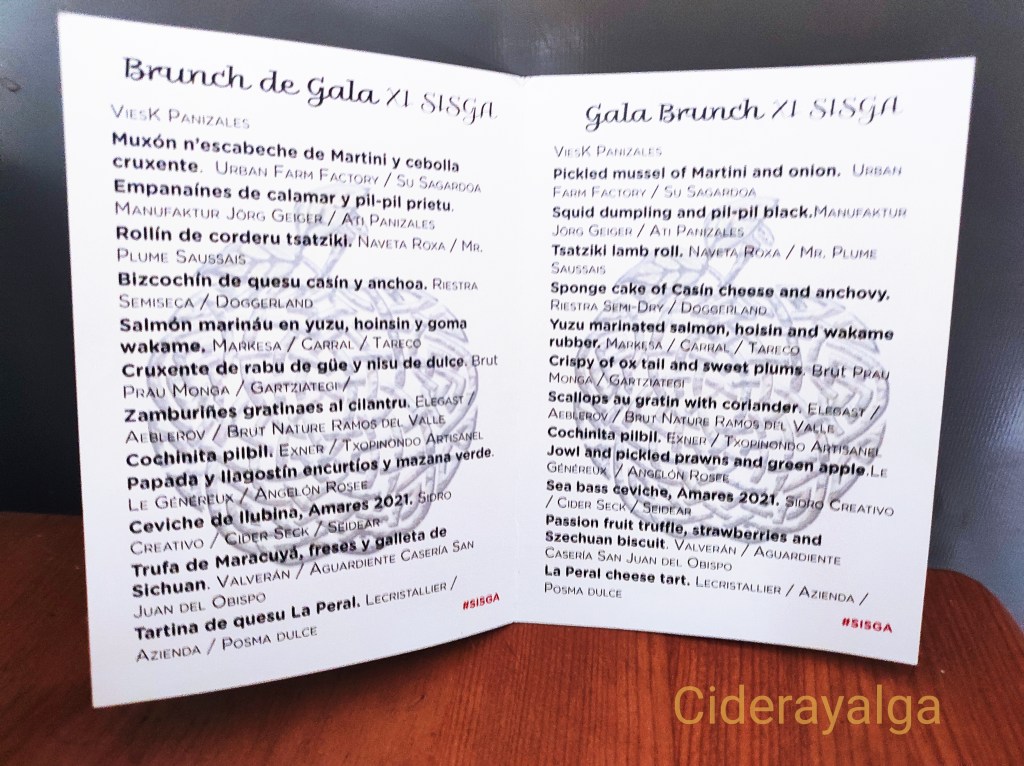 Brunch de Gala XI SISGA
ViesK Panizales
Muxón n'escabeche de Martini y cebolla
cruxente. Urban Farm Factory / Su Sagardoa
Empanaínes de calamar y pil-pil prietu.
Manufaktur Jörg Geiger / Ati Panizales
Rollín de corderu tsatziki. Naveta Roxa / Mr.
Plume Saussais
Bizcochín de quesu casín y anchoa. Riestra
Semiseca / Doggerland
Salmón marináu en yuzu, hoinsin y goma
wakame. Markesa / Carral / Tareco
Cruxente de rabu de güe y nisu de dulce. Brut
Prau Monga / Gartziategi /
Zamburiñes gratinaes al cilantru. Elegast /
Aeblerov / Brut Nature Ramos del Valle
Cochinita pilbil. Exner / Txopinondo Artisanel
Papada y llagostín encurtíos y mazana verde.
Le Généreux / Angelón Rosee
Ceviche de llubina, Amares 2021. Sidro
Creativo / Cider Seck / Seidear
Trufa de Maracuyá, freses y galleta de
Sichuan. Valverán / Aguardiente Casería San
Juan del Obispo
Tartina de quesu La Peral. Lecristallier /
Azienda / Posma dulce
#SISGA
Gala Brunch XI SISGA
ViesK Panizales
Pickled mussel of Martini and onion. Urban
Farm Factory / Su Sagardoa
Squid dumpling and pil-pil black.Manufaktur
Jörg Geiger / Ati Panizales
Tsatziki lamb roll. Naveta Roxa / Mr. Plume
Saussais
Sponge cake of Casín cheese and anchovy.
Riestra Semi-Dry / Doggerland
Yuzu marinated salmon, hoisin and wakame
rubber. Markesa / Carral / Tareco
Crispy of ox tail and sweet plums. Brut Prau
Monga / Gartziategi
Scallops au gratin with coriander. Elegast /
Aeblerov / Brut Nature Ramos del Valle
Cochinita pilbil. Exner / Txopinondo Artisanel
Jowl and pickled prawns and green apple.Le
Généreux / Angelón Rosee
Sea bass ceviche, Amares 2021. Sidro Creativo
/ Cider Seck / Seidear
Passion fruit truffle, strawberries and
Szechuan biscuit. Valverán / Aguardiente
Casería San Juan del Obispo
La Peral cheese tart. Lecristallier / Azienda /
Posma dulce
#SISGA
Ciderayalga